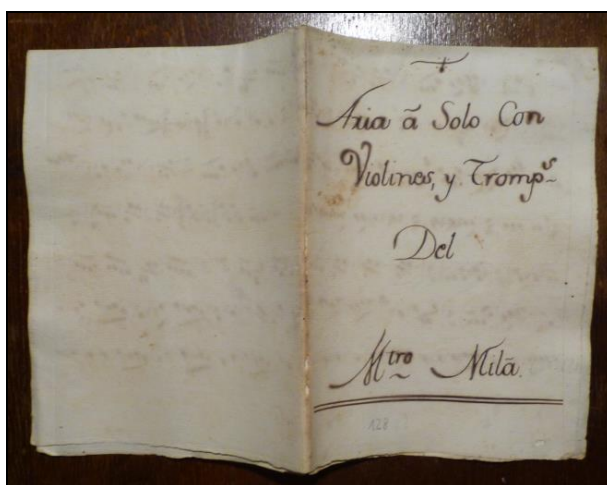 Aria ã Solo Con
Violines, y Tromp.s
Del
Mtro Milã.
128